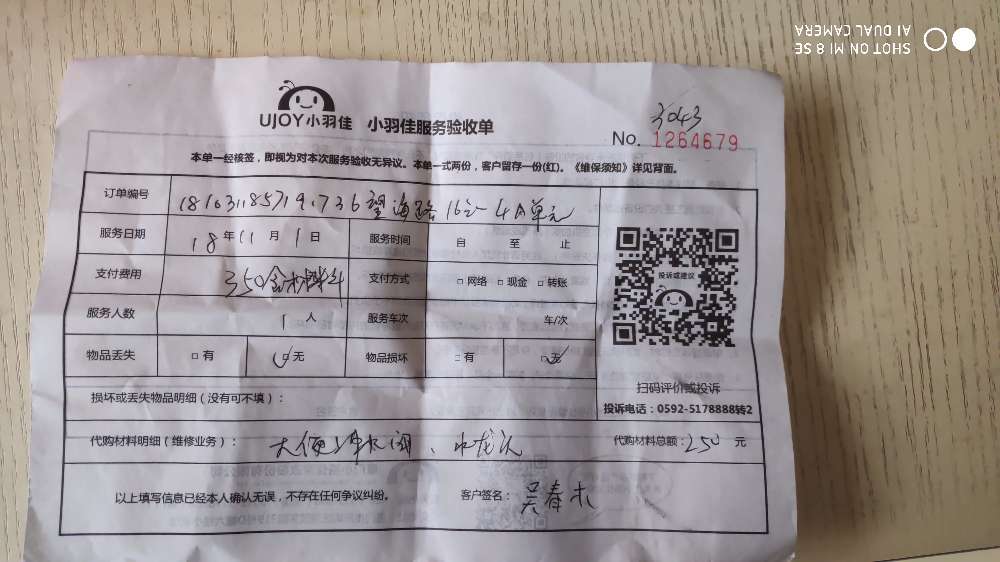 SHOT ON MI 8 SE
AI DUAL CAMERA
UJOY小羽佳 小羽佳服务验收单
3043
No. 1264679
本单一经核签，即视为对本次服务验收无异议。本单一式两份，客户留存一份(红)。《维保须知》详见背面。
订单编号 望海路16 4A单元
服务日期 18年11月1日 服务时间 自 至 止
支付费用 350含材料 支付方式 □网络 □现金 □转账
投诉或建议
服务人数 1人 服务车次 车/次
物品丢失 □有 □无 物品损坏 □有 □无
扫码评价或投诉
损坏或丢失物品明细（没有可不填）：
投诉电话：0592-5178888转2
代购材料明细（维修业务）： 大便 、水龙头 代购材料总额：250 元
以上填写信息已经本人确认无误，不存在任何争议纠纷。 客户签名： 吴春木